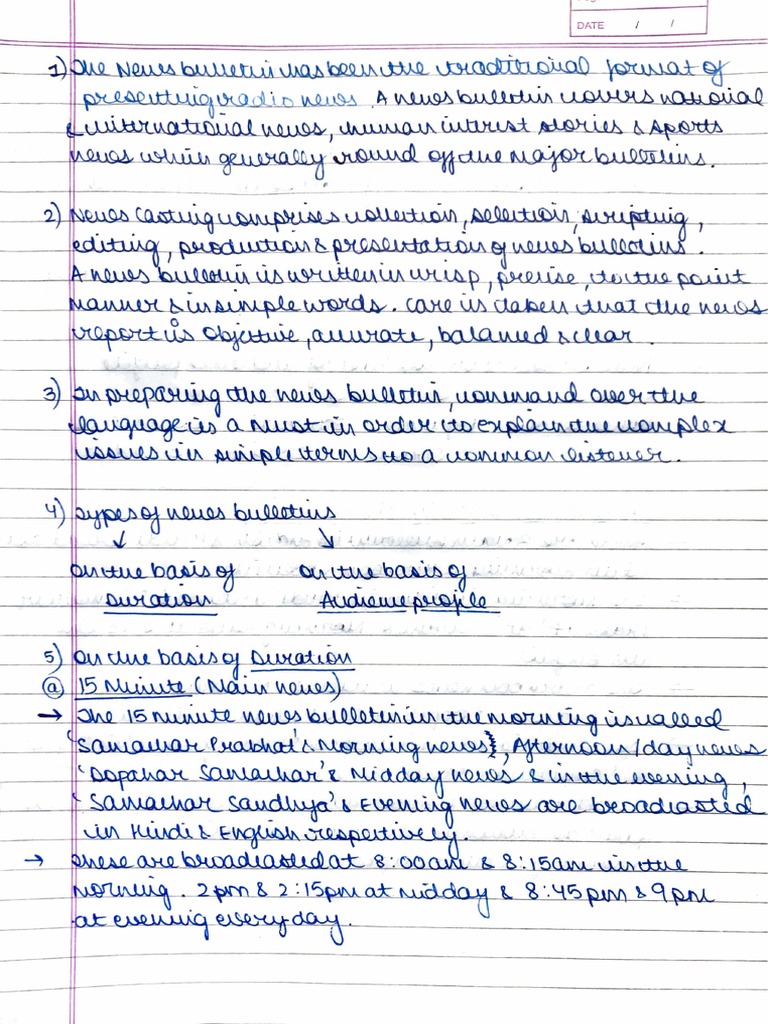 DATE / /
1) The News bulletin has been the traditional format of
presenting radio news. A news bulletin covers national
& international news, human interest stories & sports
news which generally round off the major bulletins.
2) News casting comprises collection, selection, scripting,
editing, production & presentation of news bulletins.
A news bulletin is written in crisp, precise, to the point
manner & in simple words. Care is taken that the news
report is objective, accurate, balanced & clear.
3) In preparing the news bulletin, command over the
language is a must in order to explain the complex
issues in simple terms to a common listener.
4) Types of news bulletins
↓ ↘
On the basis of On the basis of
Duration Audience profile
5) On the basis of Duration
ⓐ 15 Minute (Main news)
→ The 15 minute news bulletin in the morning is called
'Samachar Prabhat' & Morning news, Afternoon/day news
'Dopahar Samachar' & Midday news & in the evening,
'Samachar Sandhya' & Evening news are broadcasted
in Hindi & English respectively.
→ These are broadcasted at 8:00am & 8:15am in the
morning. 2pm & 2:15pm at midday & 8:45pm & 9pm
at evening everyday.